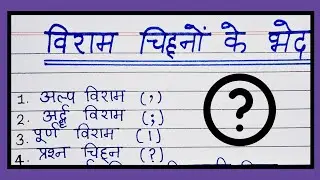 विराम चिह्नों के भेद
1. अल्प विराम (,)
2. अर्द्ध विराम (;)
3. पूर्ण विराम (।)
4. प्रश्न चिह्न (?)
?